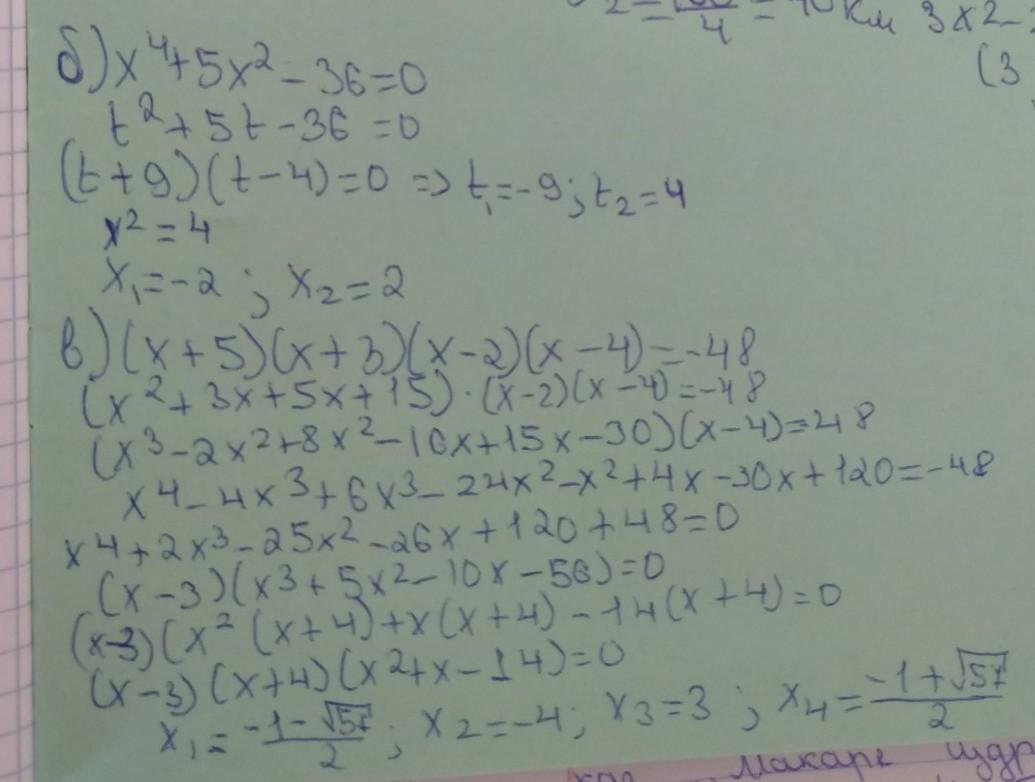 4 км 3x2-
(3
б) x⁴+5x²-36=0
t²+5t-36=0
(t+9)(t-4)=0 => t₁=-9; t₂=4
x²=4
x₁=-2; x₂=2
в) (x+5)(x+3)(x-2)(x-4)=-48
(x²+3x+5x+15)·(x-2)(x-4)=-48
(x³-2x²+8x²-16x+15x-30)(x-4)=48
x⁴-4x³+6x³-24x²-x²+4x-30x+120=-48
x⁴+2x³-25x²-26x+120+48=0
(x-3)(x³+5x²-10x-56)=0
(x-3)(x²(x+4)+x(x+4)-14(x+4)=0
(x-3)(x+4)(x²+x-14)=0
x₁=(-1-√57)/2; x₂=-4; x₃=3; x₄=(-1+√57)/2